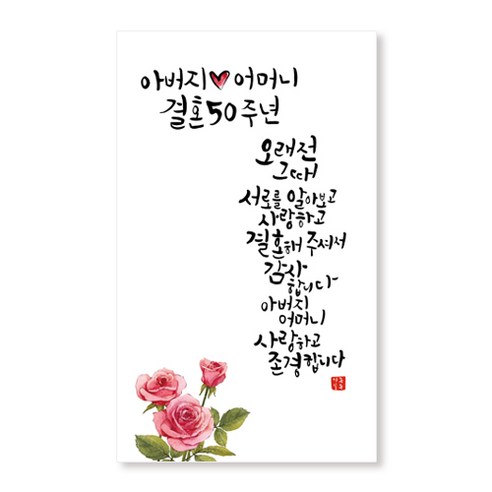 아버지♥어머니
결혼50주년
오래전
그때
서로를 알아보고
사랑하고
결혼해 주셔서
감사
합니다
아버지
어머니
사랑하고
존경합니다